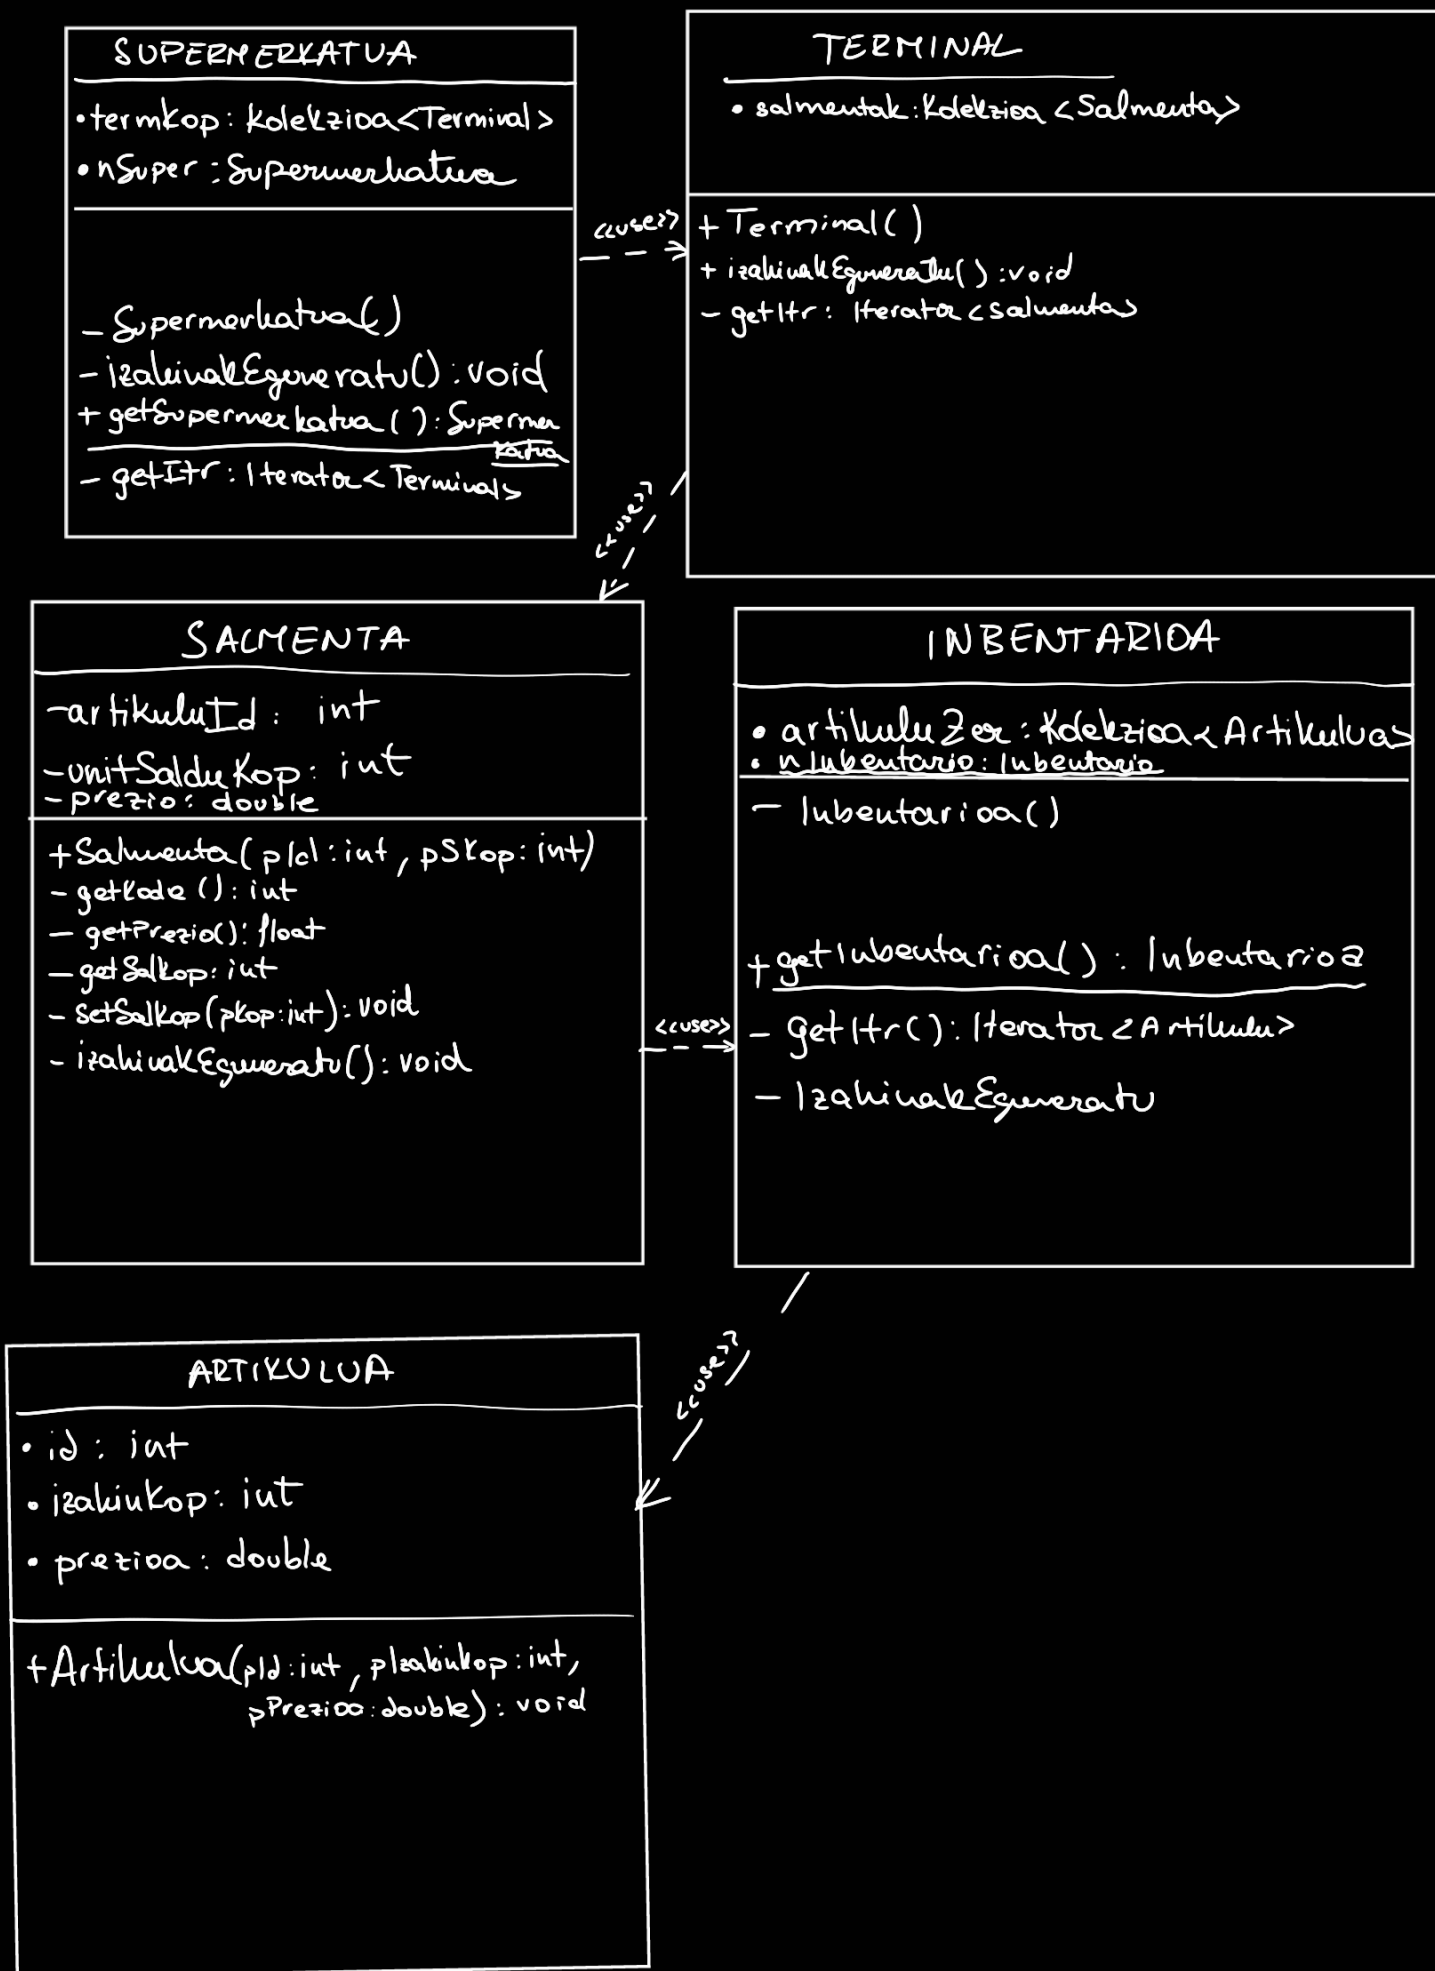 SUPERMERKATUA
• termKop: Kolekzioa<Terminal>
• nSuper: Supermerkatua
- Supermerkatua()
- izakinakEguneratu(): void
+ getSupermerkatua(): Supermer
katua
- getItr: Iterator<Terminal>
<<use>>
TERMINAL
• salmentak: Kolekzioa<Salmenta>
+ Terminal()
+ izakinakEguneratu(): void
- getItr: Iterator<Salmenta>
<<use>>
SALMENTA
- artikuluId: int
- unitSalduKop: int
- prezio: double
+ Salmenta(pId: int, pSKop: int)
- getKode(): int
- getPrezio(): float
- getSalKop: int
- setSalKop(pKop: int): void
- izakinakEguneratu(): void
<<use>>
INBENTARIOA
• artikuluZer: Kolekzioa<Artikulua>
• nInbentario: Inbentario
- Inbentarioa()
+ getInbentarioa(): Inbentarioa
- getItr(): Iterator<Artikulu>
- IzakinakEguneratu
<<use>>
ARTIKULUA
• id: int
• izakinKop: int
• prezioa: double
+ Artikulua(pId: int, pIzakinkop: int,
pPrezioa: double): void